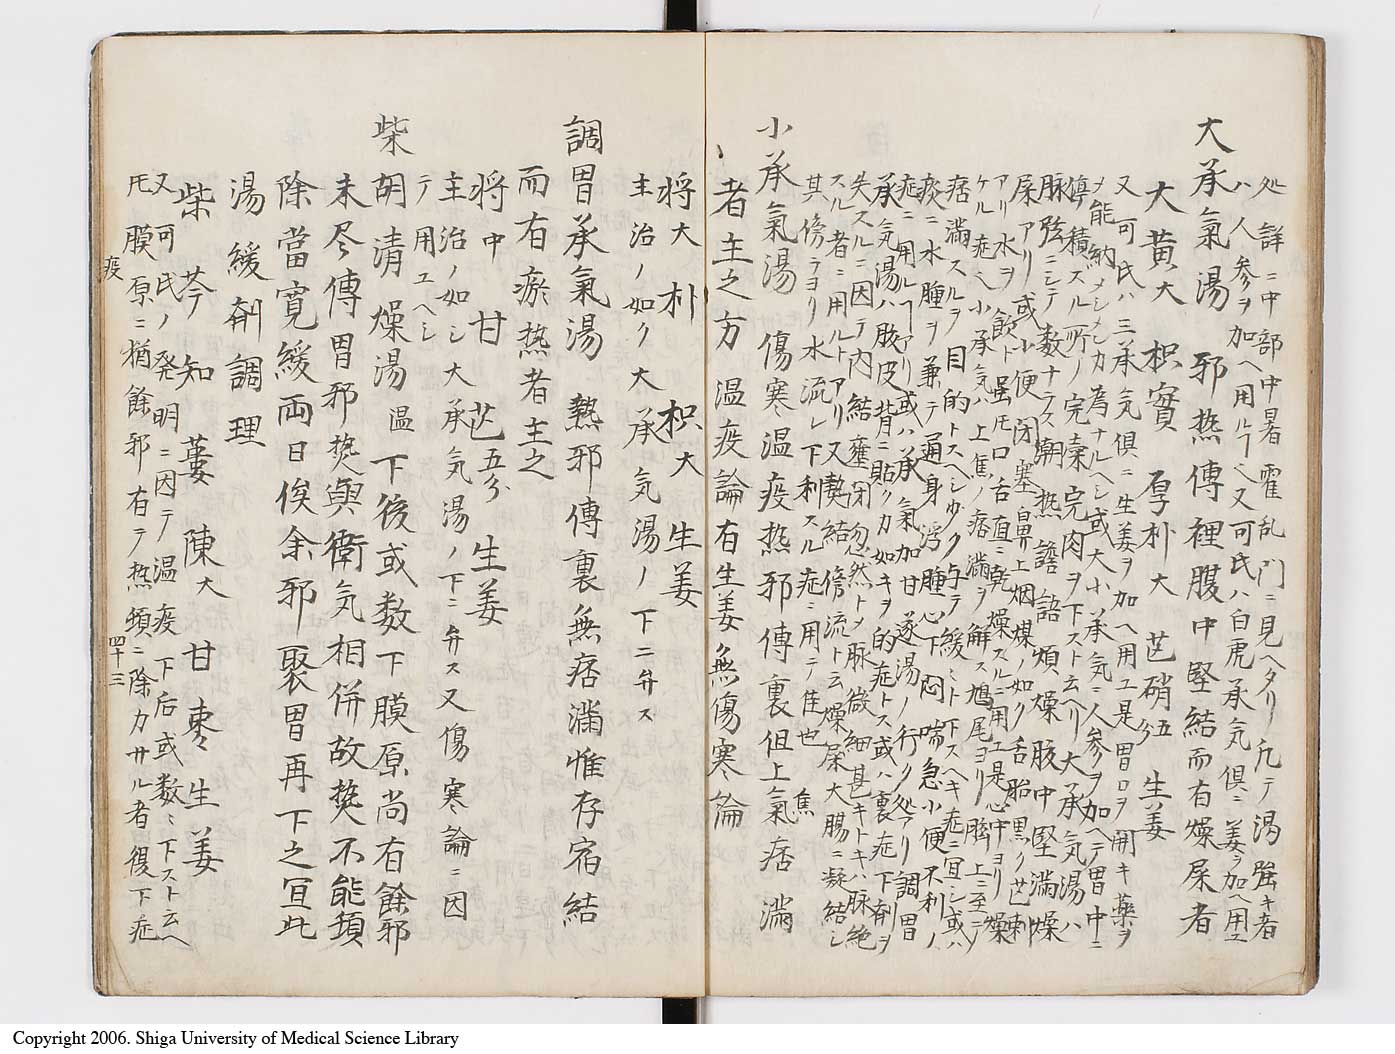 処詳ニ中部中暑霍乱門ニ見ヘタリ凡テ渇強キ者
ハ人参ヲ加ヘ用ルヿ又可氏ハ白虎承気俱ニ姜ヲ加ヘ用ユ
大承氣湯 邪熱傳裡腹中堅結而有燥屎者
大黄大 枳實 厚朴大 芒硝五分 生姜
又可氏ハ三承气俱ニ生姜ヲ加ヘ用ユ是胃口ヲ開キ薬ヲ
メ能納メシメンカ為ナルヘシ或大小承気ニ人参ヲ加ヘテ胃中ニ
積スル所ノ完穀完肉ヲ下スト云ヘリ大承気湯ハ
脉弦ニシテ数ナラス潮热譫語煩燥腹中堅満燥
屎アリ或小便閉塞鼻上烟煤ノ如ク舌胎黒ク芒刺
アリ水ヲ飲ト虽モ口舌直ニ乾燥スルニ用ユ是心中ヨリ燥
ケル症ヘ小承気ハ上焦ノ痞満ヲ解ス鳩尾ヨリ臍上ニ至ニ
痞満スルヲ目的トスヘシゆク与テ緩ミト下スヘキ症ニ宜シ或ハ
痰ニ水腫ヲ兼テ通身浮腫心下悶喘急小便不利ノ
症ニ用ルヿアリ或ハ承氣加甘遂湯ノ行ク処アリ調胃
承気湯ハ腹皮背ニ貼クカ如キヲ的症トス或ハ裏症下剤ヲ
失スルニ因テ内結壅閉忽然トメ脉微細甚キトキハ脉絶
スル者ニ用ルヿアリ又熱結傍流ト云燥屎大腸ニ凝結シ
其傍テヨリ水流レ下利スル症ニ用テ佳也
小承氣湯 傷寒温疫热邪傳裏但上氣痞満
焦
者主之方 温疫論有生姜無傷寒論
将大 朴 枳大 生姜
主治ノ如ク大承気湯ノ下ニ弁ス
調胃承氣湯 熱邪傳裏無痞満惟存宿結
而有瘀热者主之
将中 甘 芒五分 生姜
主治ノ如シ大承気湯ノ下ニ弁ス又傷寒論ニ因
テ用ユヘシ
柴胡清燥湯 温 下後或数下膜原尚有餘邪
未尽傳胃邪熱與衛気相併故熱不能頓
除當寛緩両日俟余邪聚胃再下之宜此
湯緩剤調理
柴 芩 知 蔞 陳大 甘 枣 生姜
又可氏ノ発明ニ因テ温疫下后或数〻下スト云ヘ
𪜈膜原ニ猶餘邪有テ热頓ニ除カサル者復下症
疫
四十三